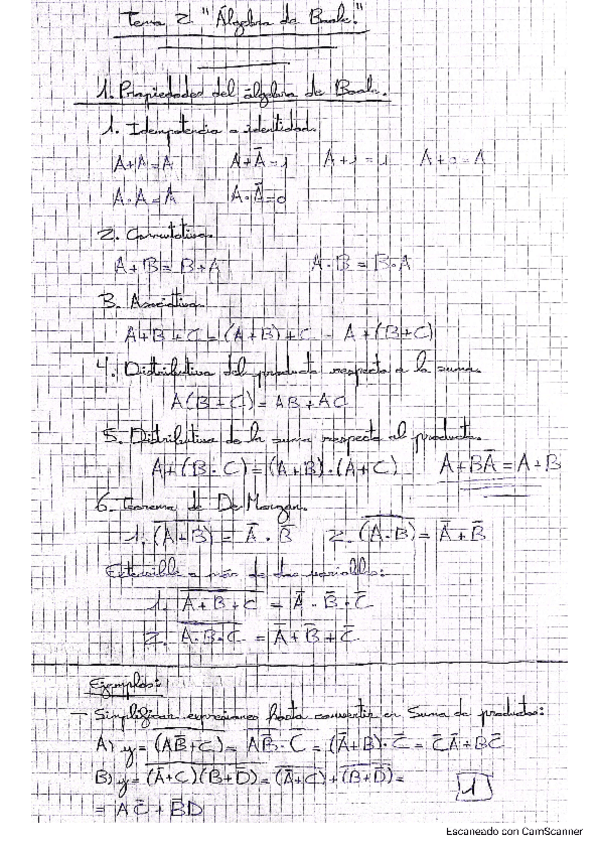 Tema 2 "Álgebra de Boole"
1. Propiedades del álgebra de Boole.
1. Idempotencia o identidad.
A+A=A A+Ā=1 A+1=1 A+0=A
A·A=A A·Ā=0
2. Conmutativa.
A+B=B+A A·B=B·A
3. Asociativa
A+B+C=(A+B)+C = A+(B+C)
4. Distributiva del producto respecto a la suma.
A(B+C)=AB+AC
5. Distributiva de la suma respecto al producto.
A+(B·C)=(A+B)·(A+C) A+BĀ=A+B
6. Teorema de De Morgan.
1. (A+B)̅ = Ā·B̅ 2. (A·B)̅ = Ā+B̅
Extensible a más de dos variables:
1. A̅+̅B̅+̅C̅ = Ā·B̅·C̅
2. A̅·̅B̅·̅C̅ = Ā+B̅+C̅
Ejemplos:
- Simplificar expresiones hasta convertir en Suma de productos:
A) y=
B) y=
= AC̅+B̅D
1
Escaneado con CamScanner